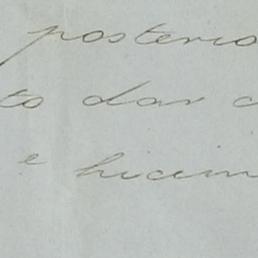 posterio
to dar c
e hicim